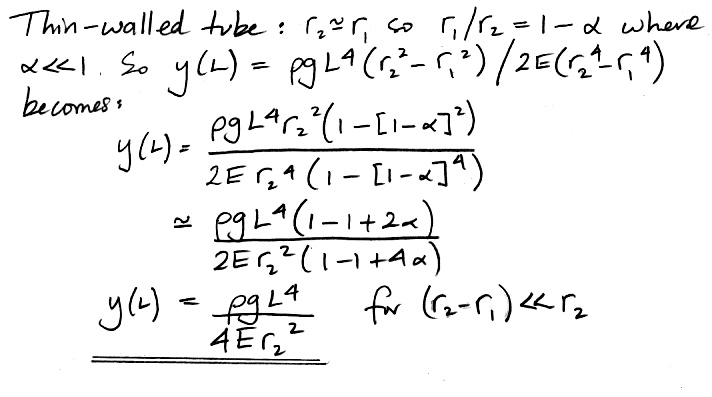 Thin-walled tube : r₂≃r₁ so r₁/r₂ = 1 - α where
α<<1. So y(L) = ρgL⁴(r₂²-r₁²)/2E(r₂⁴-r₁⁴)
becomes:
y(L) = ρgL⁴r₂²(1-[1-α]²) / 2Er₂⁴(1-[1-α]⁴)
≃ ρgL⁴(1-1+2α) / 2Er₂²(1-1+4α)
y(L) = ρgL⁴ / 4Er₂² for (r₂-r₁)<<r₂